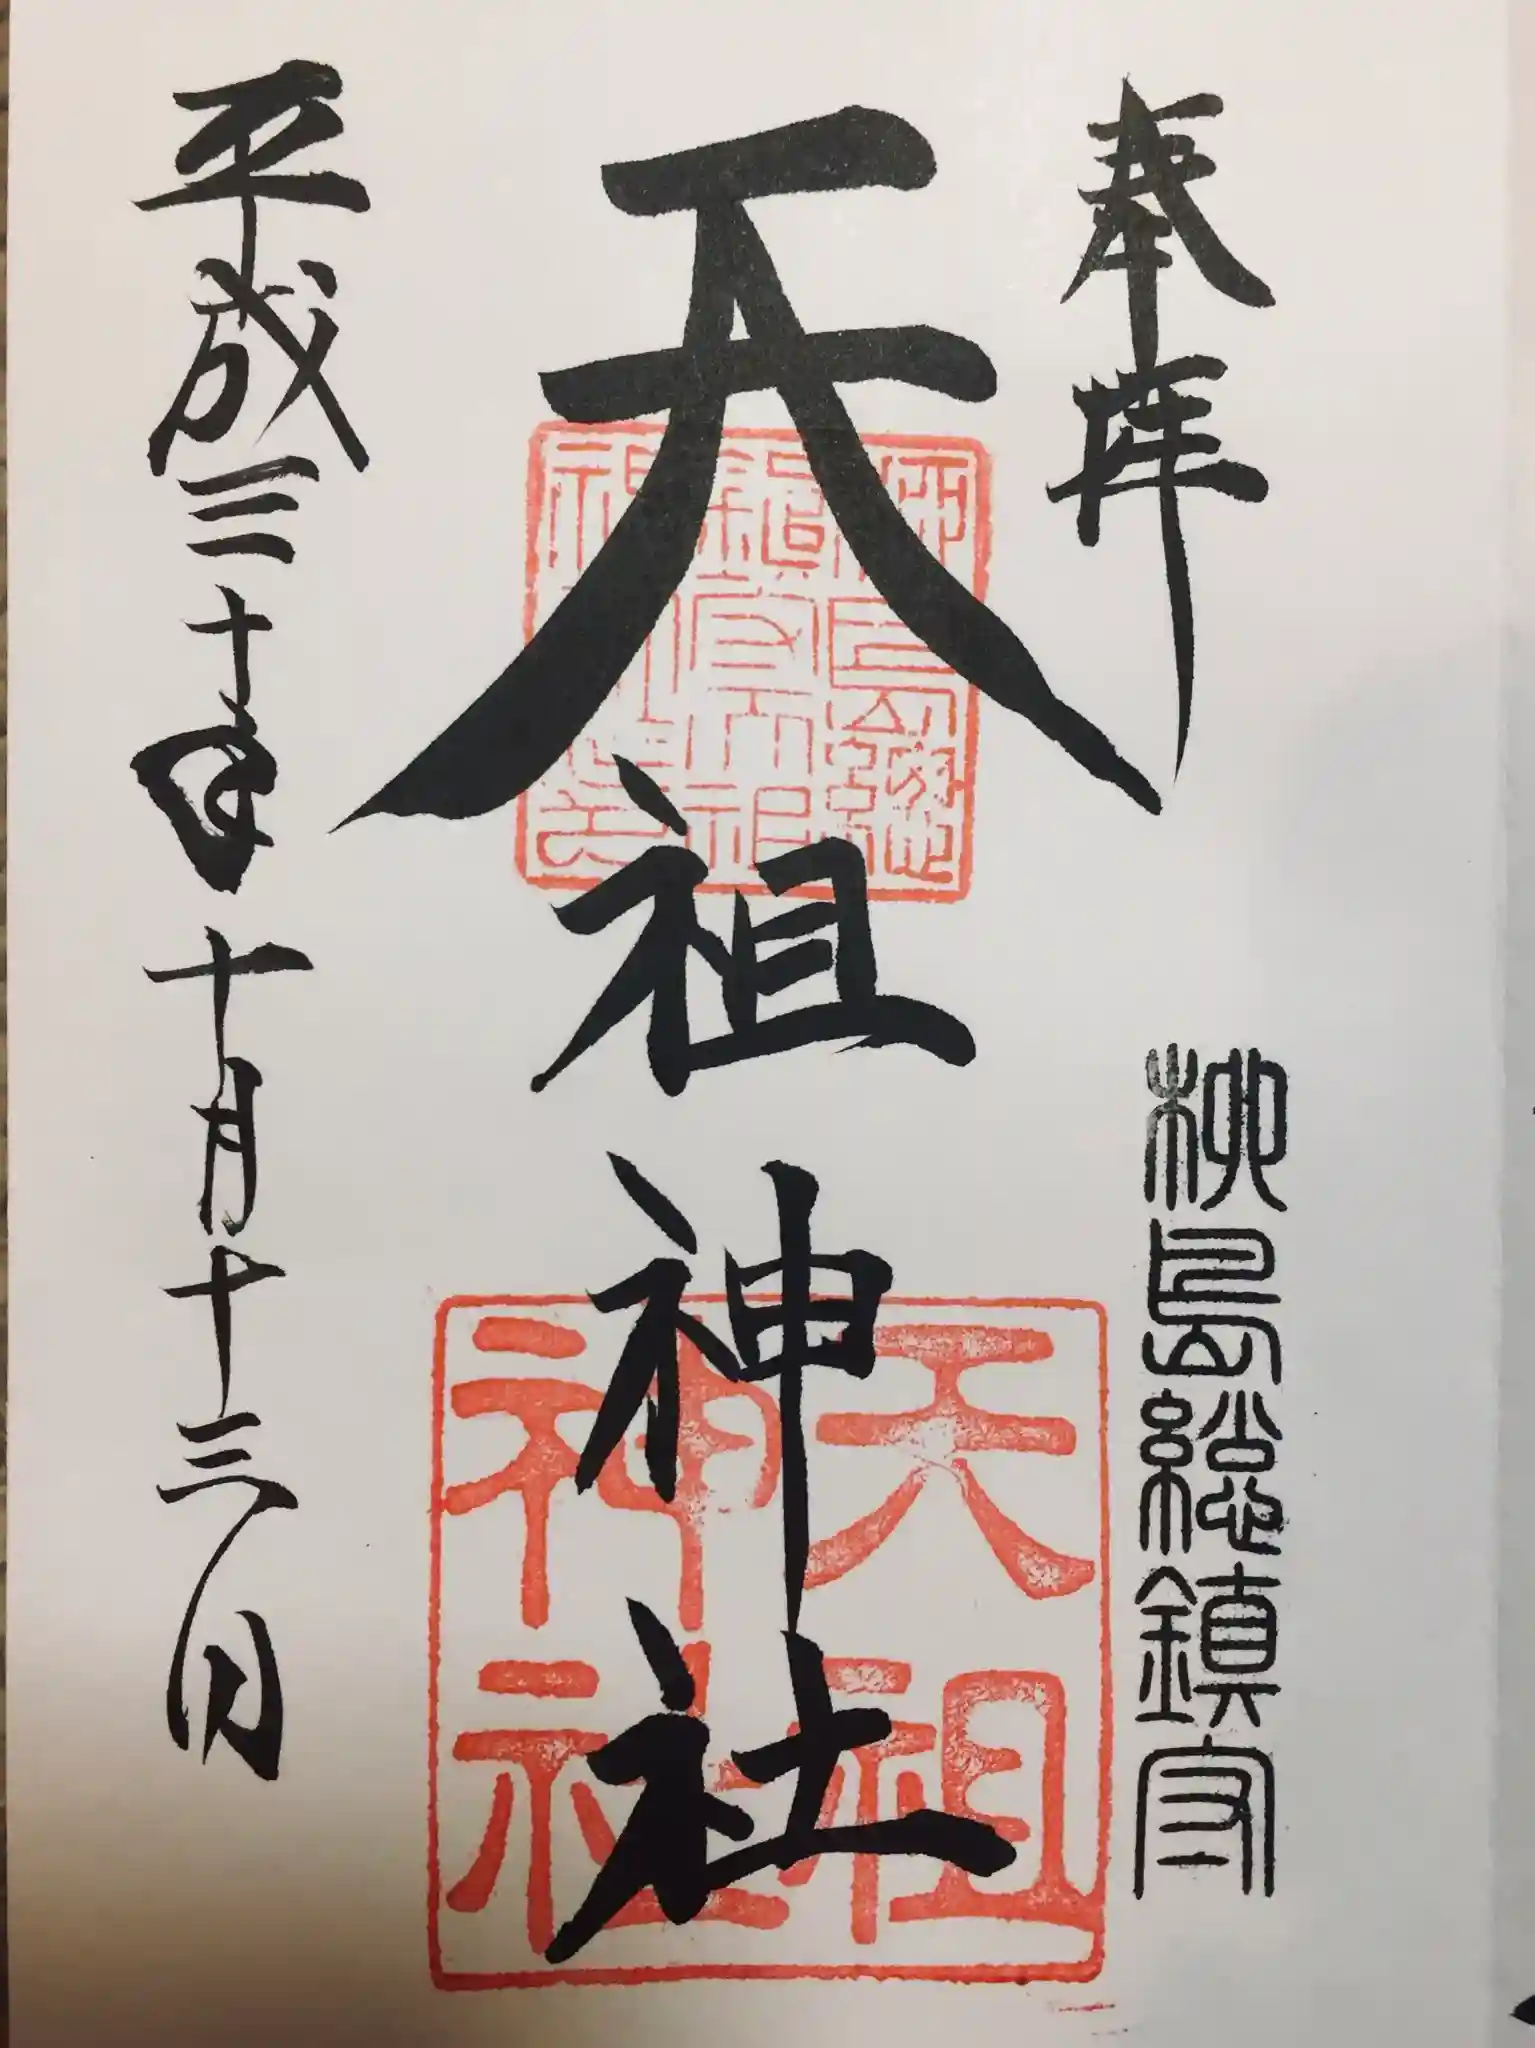 奉拝
柳島総鎮守
天祖神社
天祖
神社
平成三十年十月十三日